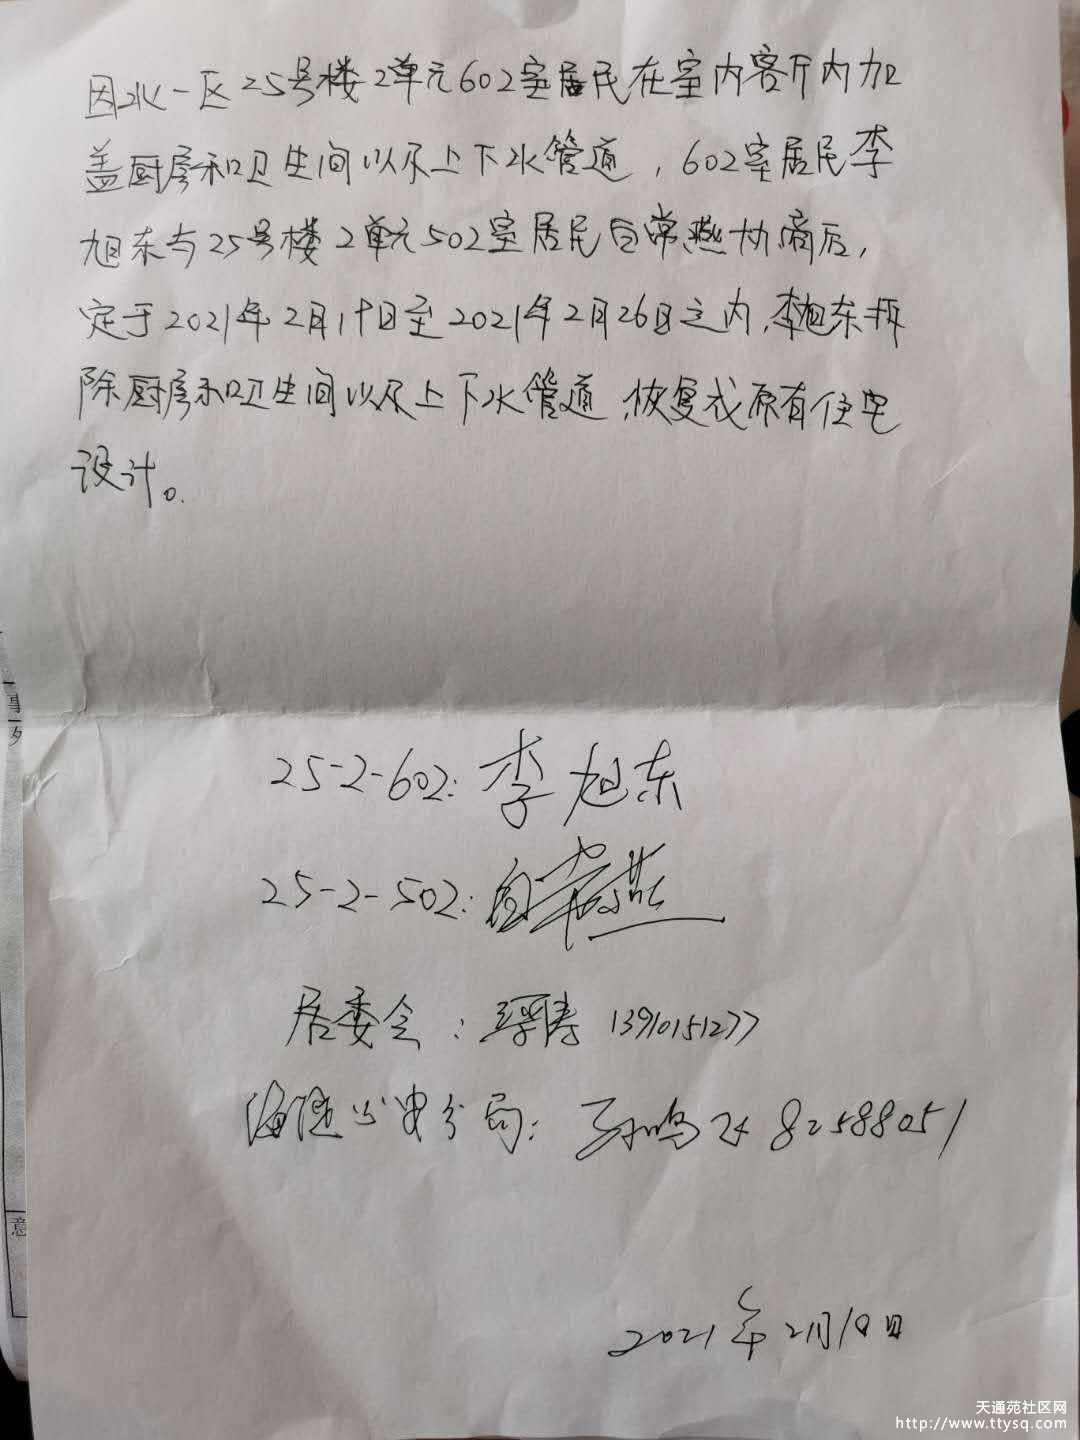 因北一区25号楼2单元602室居民在室内客厅内加
盖厨房和卫生间以及上下水管道，602室居民李
旭东与25号楼2单元502室居民自常燕协商后，
定于2021年2月19日至2021年2月26日之内，李旭东拆
除厨房和卫生间以及上下水管道，恢复成原有住宅
设计。
25-2-602：李旭东
25-2-502：自常燕
居委会： 13910151277
公安分局：孙鸣飞 82588051
2021年2月10日
事
意
天通苑社区网
http://www.ttysq.com